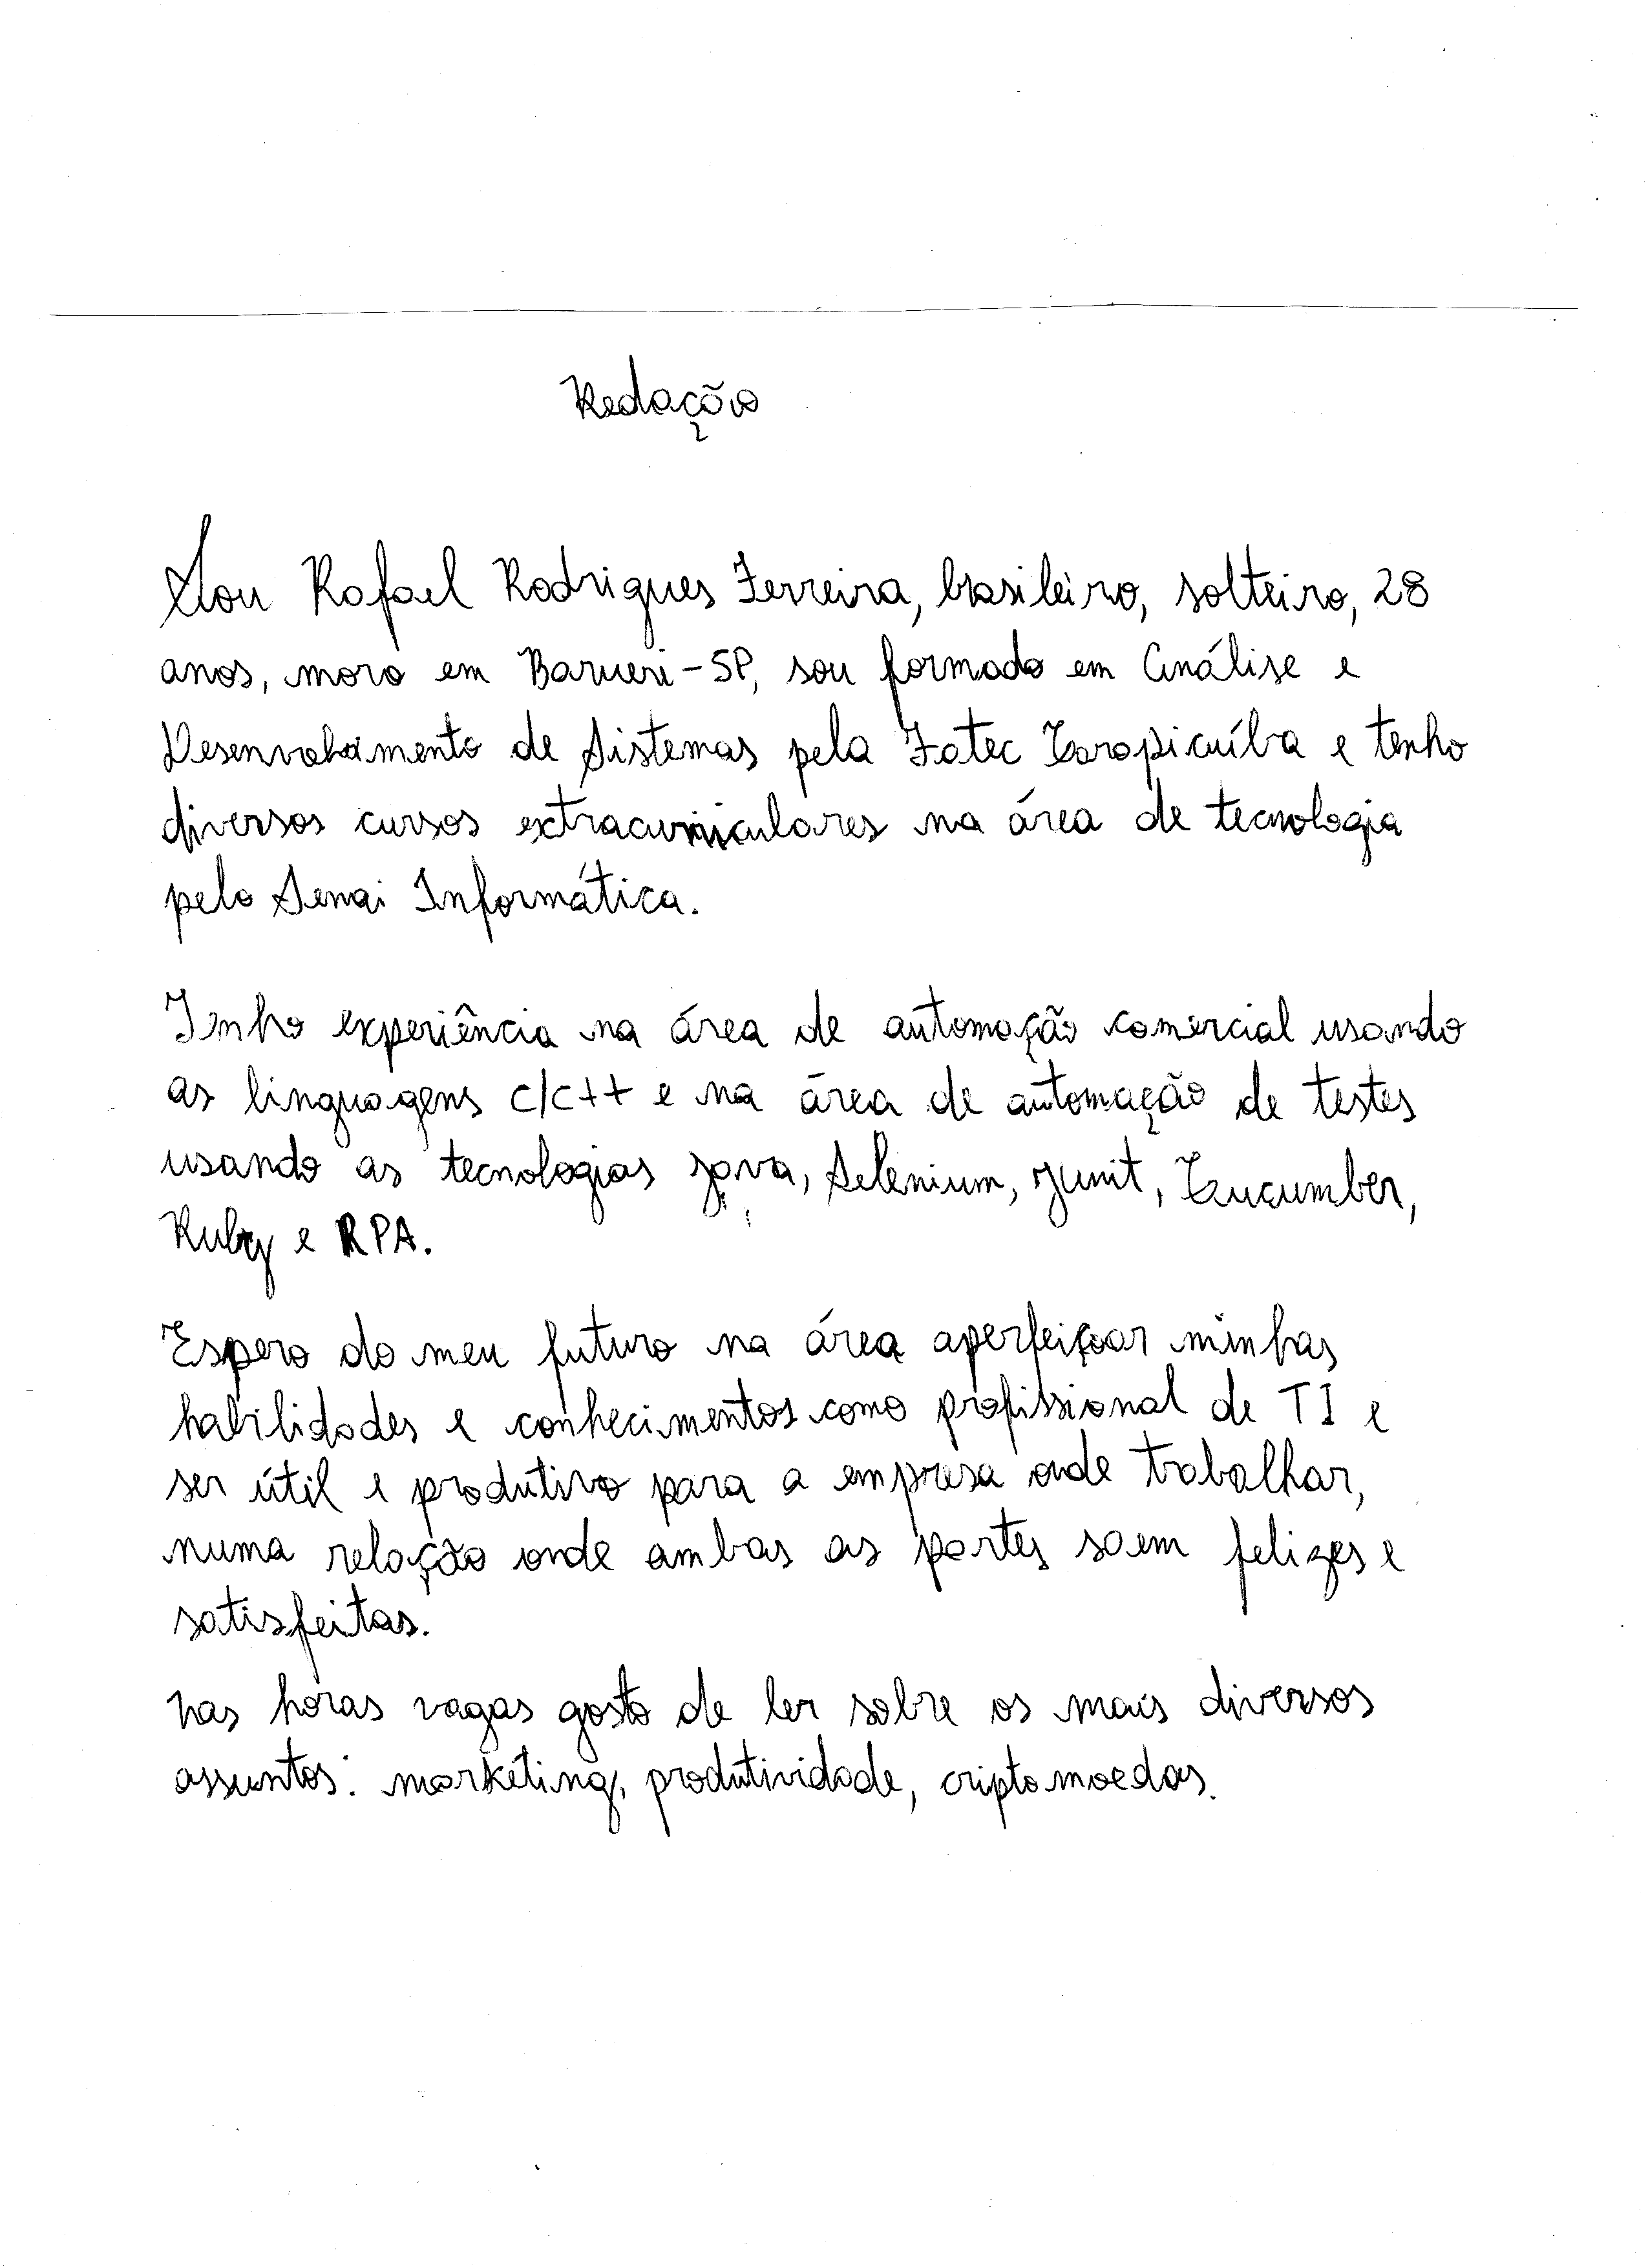 Redação
Sou Rafael Rodrigues Ferreira, brasileiro, solteiro, 28
anos, moro em Barueri-SP, sou formado em Análise e
Desenvolvimento de Sistemas pela Fatec Carapicuíba e tenho
diversos cursos extracurriculares na área de tecnologia
pelo Senai Informática.
Tenho experiência na área de automação comercial usando
as linguagens c/c++ e na área de automação de testes
usando as tecnologias java, Selenium, junit, Cucumber,
Ruby e RPA.
Espero do meu futuro na área aperfeiçoar minhas
habilidades e conhecimentos como profissional de TI e
ser útil e produtivo para a empresa onde trabalhar,
numa relação onde ambas as partes saem felizes e
satisfeitas.
nas horas vagas gosto de ler sobre os mais diversos
assuntos: marketing, produtividade, criptomoedas.